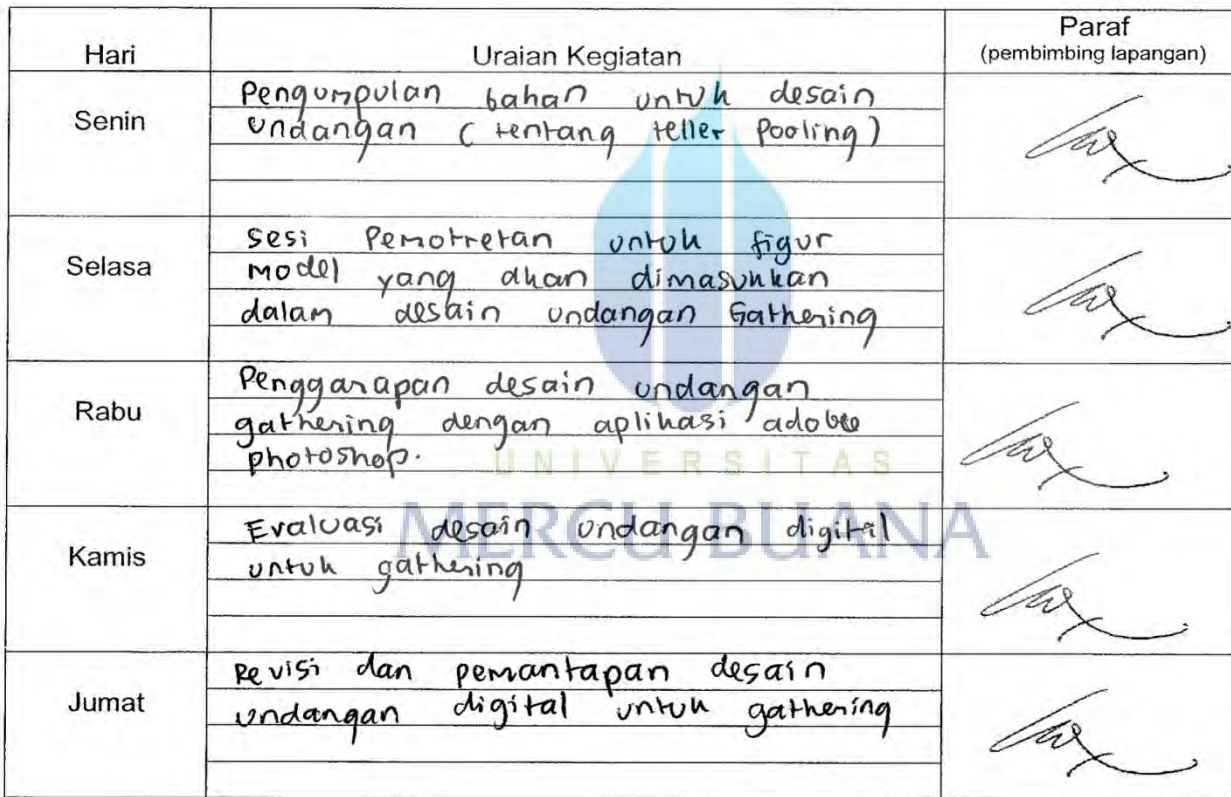 Hari Uraian Kegiatan Paraf
(pembimbing lapangan)
Senin
Pengumpulan bahan untuk desain
undangan (tentang teller Pooling)
Selasa
sesi Pemotretan untuk figur
model yang akan dimasukkan
dalam desain undangan Gathering
Rabu
Penggarapan desain undangan
gathering dengan aplikasi adobe
photoshop.
UNIVERSITAS
MERCU BUANA
Kamis
Evaluasi desain undangan digital
untuk gathering
Jumat
Revisi dan pemantapan desain
undangan digital untuk gathering